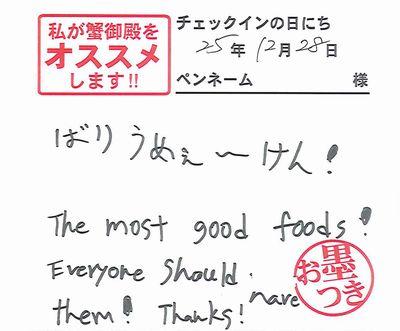 私が蟹御殿を
オススメ
します!!
チェックインの日にち
25年 12月 28日
ペンネーム 様
ばりうめぇ〜けん!
The most good foods!
Everyone should have
them! Thanks!
お墨つき